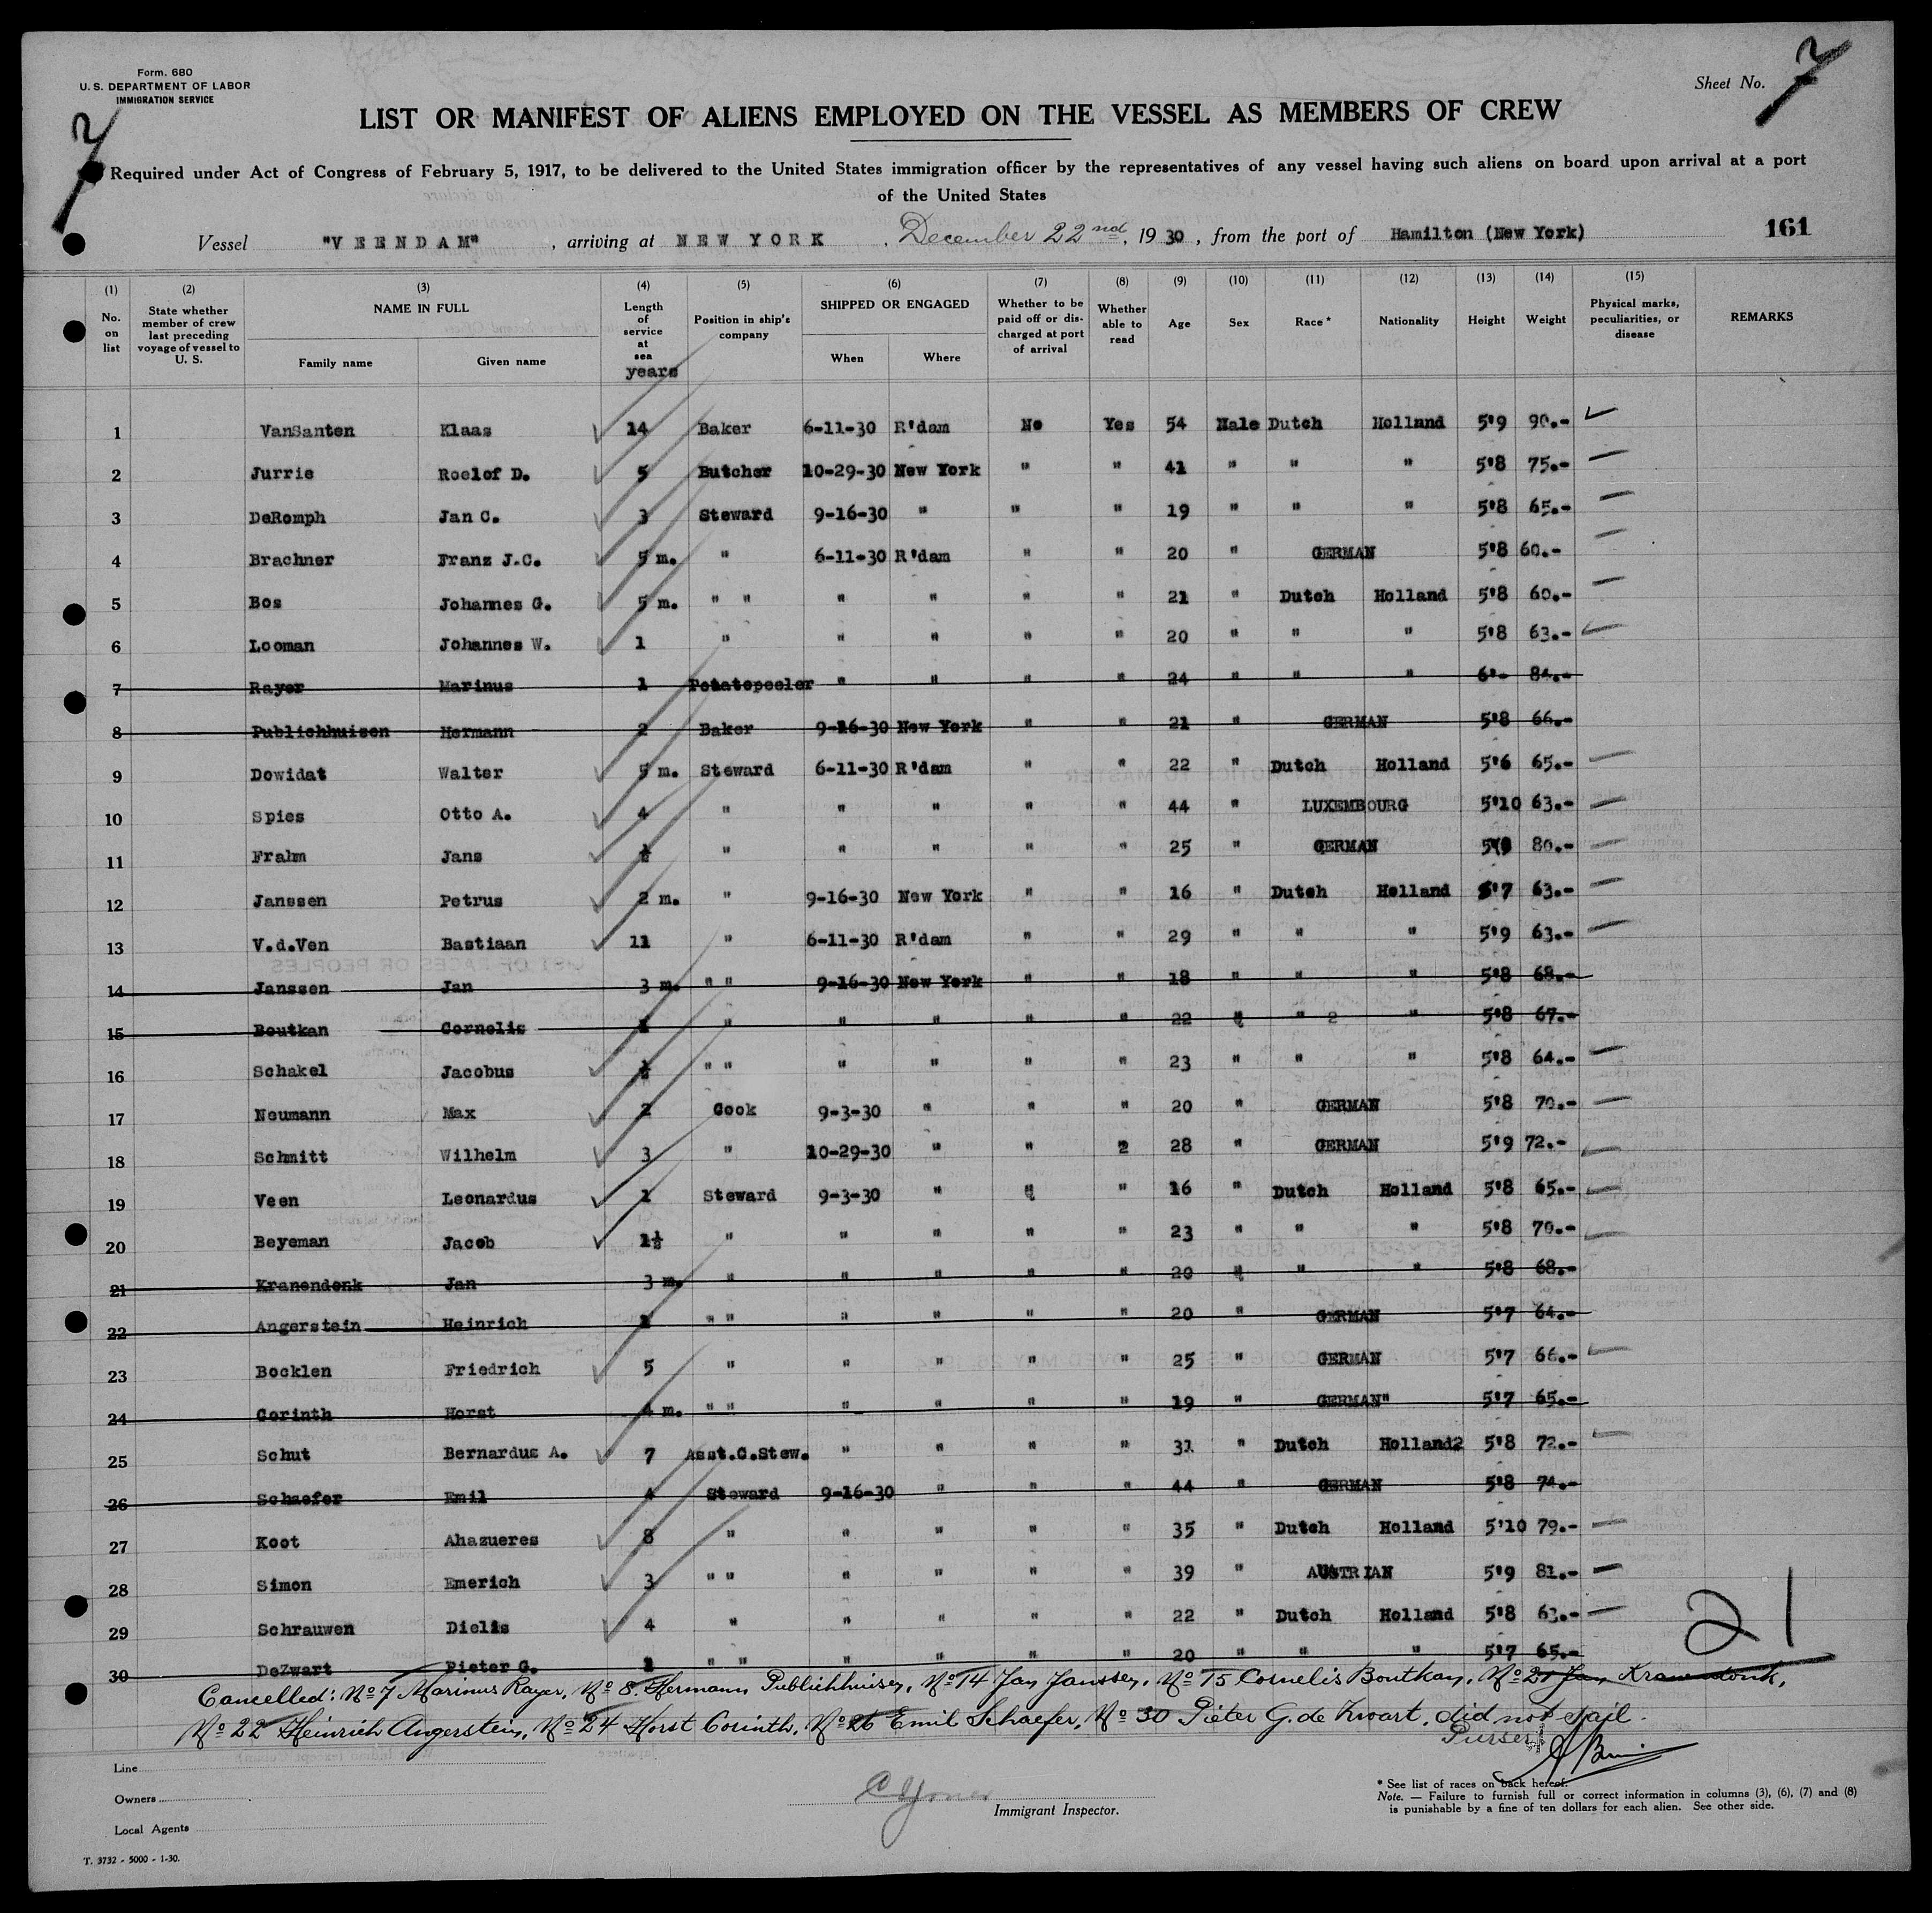 Form. 680
U. S. DEPARTMENT OF LABOR
IMMIGRATION SERVICE
Sheet No. 7
7
LIST OR MANIFEST OF ALIENS EMPLOYED ON THE VESSEL AS MEMBERS OF CREW
Required under Act of Congress of February 5, 1917, to be delivered to the United States immigration officer by the representatives of any vessel having such aliens on board upon arrival at a port
of the United States
Vessel "VEENDAM", arriving at NEW YORK, December 22nd, 1930, from the port of Hamilton (New York) 161
(1) No. on list (2) State whether member of crew last preceding voyage of vessel to U. S. (3) NAME IN FULL Family name Given name (4) Length of service at sea years (5) Position in ship's company (6) SHIPPED OR ENGAGED When Where (7) Whether to be paid off or discharged at port of arrival (8) Whether able to read (9) Age (10) Sex (11) Race * (12) Nationality (13) Height (14) Weight (15) Physical marks, peculiarities, or disease REMARKS
1 VanSanten Klaas 14 Baker 6-11-30 R'dam No Yes 54 Male Dutch Holland 5'9 90.-
2 Jurrie Roelof D. 5 Butcher 10-29-30 New York " " 41 " " " 5'8 75.-
3 DeRomph Jan C. 3 Steward 9-16-30 " " " 19 " " " 5'8 65.-
4 Brachner Franz J.C. 5 m. " 6-11-30 R'dam " " 20 " GERMAN 5'8 60.-
5 Bos Johannes G. 5 m. " " " " " " 21 " Dutch Holland 5'8 60.-
6 Looman Johannes W. 1 " " " " " 20 " " " 5'8 63.-
7 Rayer Marinus 1 Potatopeeler " " " " 24 " " " 6'- 84.-
8 Publichhuisen Hermann 2 Baker 9-16-30 New York " " 21 " GERMAN 5'8 66.-
9 Dowidat Walter 5 m. Steward 6-11-30 R'dam " " 22 " Dutch Holland 5'6 65.-
10 Spies Otto A. 4 " " " " " 44 " LUXEMBOURG 5'10 63.-
11 Frahm Jans ½ " " " " " 25 " GERMAN 80.-
12 Janssen Petrus 2 m. " 9-16-30 New York " " 16 " Dutch Holland 5'7 63.-
13 V.d.Ven Bastiaan 11 " 6-11-30 R'dam " " 29 " " " 5'9 63.-
14 Janssen Jan 3 m. " " 9-16-30 New York " " 18 " " " 5'8 68.-
15 Boutkan Cornelis 1 " " " " " 22 " " 2 " 5'8 67.-
16 Schakel Jacobus ½ " " " " " " 23 " " " 5'8 64.-
17 Neumann Max 2 Cook 9-3-30 " " " 20 " GERMAN 5'8 70.-
18 Schmitt Wilhelm 3 " 10-29-30 " " 2 28 " GERMAN 5'9 72.-
19 Veen Leonardus 1 Steward 9-3-30 " " " 16 " Dutch Holland 5'8 65.-
20 Beyeman Jacob 1½ " " " " " 23 " " " 5'8 70.-
21 Kranendonk Jan 3 m. " " " " " 20 " " " 5'8 68.-
22 Angerstein Heinrich 1 " " " " " " 20 " GERMAN 5'7 64.-
23 Bocklen Friedrich 5 " " " " " 25 " GERMAN 5'7 66.-
24 Corinth Horst 4 m. " " " " " " 19 " GERMAN" 5'7 65.-
25 Schut Bernardus A. 7 Asst.C.Stew. " " " " 31 " Dutch Holland2 5'8 72.-
26 Schaefer Emil 4 Steward 9-16-30 " " " 44 " GERMAN 5'8 74.-
27 Koot Ahazueres 8 " " " " " 35 " Dutch Holland 5'10 79.-
28 Simon Emerich 3 " " " " " " 39 " AUSTRIAN 5'9 81.-
29 Schrauwen Dielis 4 " " " " " 22 " Dutch Holland 5'8 63.-
30 DeZwart Pieter G. 1 " " " " " " 20 " " " 5'7 65.-
21
Cancelled: No 7 Marinus Rayer, No 8. Hermann Publichhuisen, No 14 Jan Janssen, No 15 Cornelis Boutkan, No 21 Jan Kranendonk,
No 22 Heinrich Angerstein, No 24 Horst Corinth, No 26 Emil Schaefer, No 30 Pieter G. de Zwart, did not sail.
Purser
Line
Owners
Local Agents
Immigrant Inspector.
* See list of races on back hereof.
Note. — Failure to furnish full or correct information in columns (3), (6), (7) and (8)
is punishable by a fine of ten dollars for each alien. See other side.
T. 3732 - 5000 - 1-30.